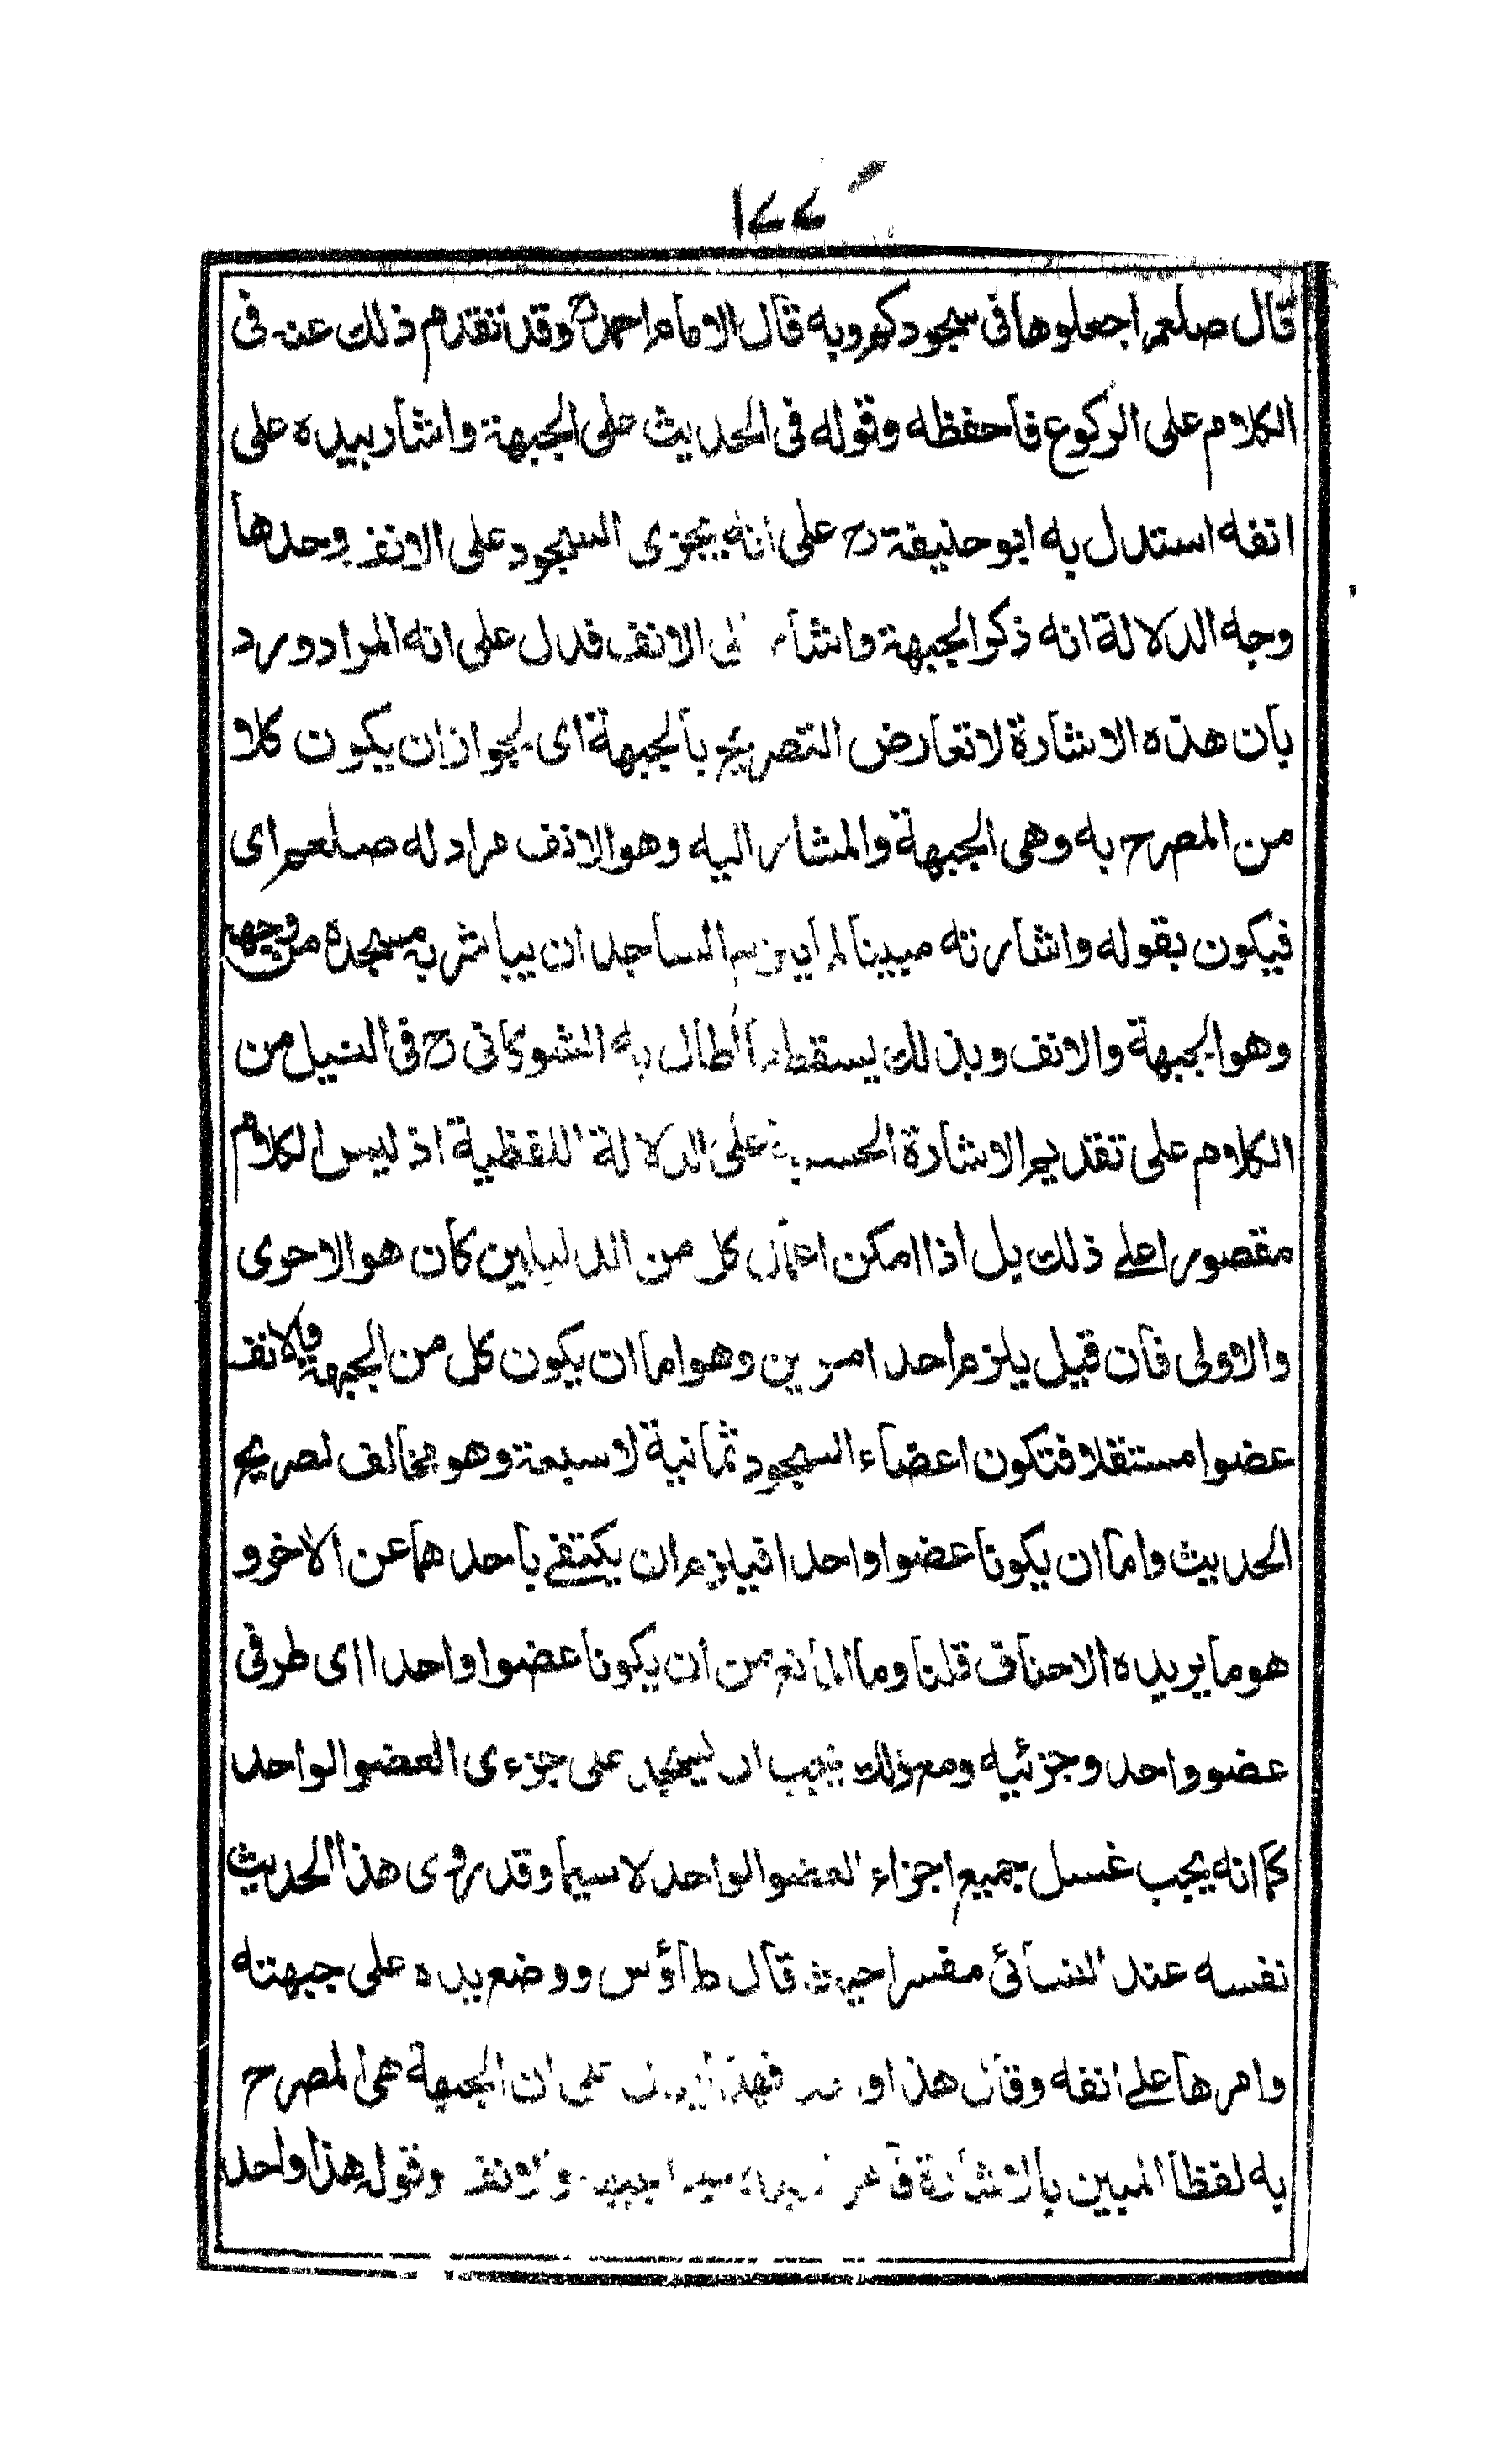 ١٧٧
قال صلعم اجعلوها فى سجودكم وبه قال الامام احمد رح وقد تقدم ذلك عنه فى
الكلام على الركوع فاحفظه وقوله فى الحديث على الجبهة واشار بيده على
انفه استدل به ابو حنيفة رح على انه يجزى السجود على الانف وحدها
وجه الدلالة انه ذكر الجبهة واشار الى الانف فدل على انه المراد ورد
بان هذه الاشارة لا تعارض التصريح بالجبهة اى لجواز ان يكون كلا
من المصرح به وهى الجبهة والمشار اليه وهو الانف مراد له صلعم اى
فيكون بقوله واشارته مبينا لما يلزم الساجد ان يباشر به مسجده من وجهه
وهو الجبهة والانف وبذلك يسقط ما اطال به الشوكانى رح فى النيل من
الكلام على تقديم الاشارة الحسية على الدلالة اللفظية اذ ليس الكلام
مقصورا على ذلك بل اذا امكن اعمال كل من الدليلين كان هو الاحرى
والاولى فان قيل يلزم احد امرين وهو اما ان يكون كل من الجبهة والانف
عضوا مستقلا فتكون اعضاء السجود ثمانية لا سبعة وهو مخالف لصريح
الحديث واما ان يكونا عضوا واحدا فيلزم ان يكتفے باحدهما عن الاخر و
هو ما يريده الاحناف قلنا وما المانع من ان يكونا عضوا واحدا اى طرفى
عضو واحد وجزئيه ومع ذلك يجب ان يسجد على جزءى العضو الواحد
كما انه يجب غسل جميع اجزاء العضو الواحد لا سيما وقد روى هذا الحديث
نفسه عند النسائى مفسرا حيث قال طاؤس ووضع يده على جبهته
وامرها على انفه وقال هذا واحد فهذا على ان الجبهة هى المصرح
به لفظا المبين بالاشارة والانف وقوله هذا واحد